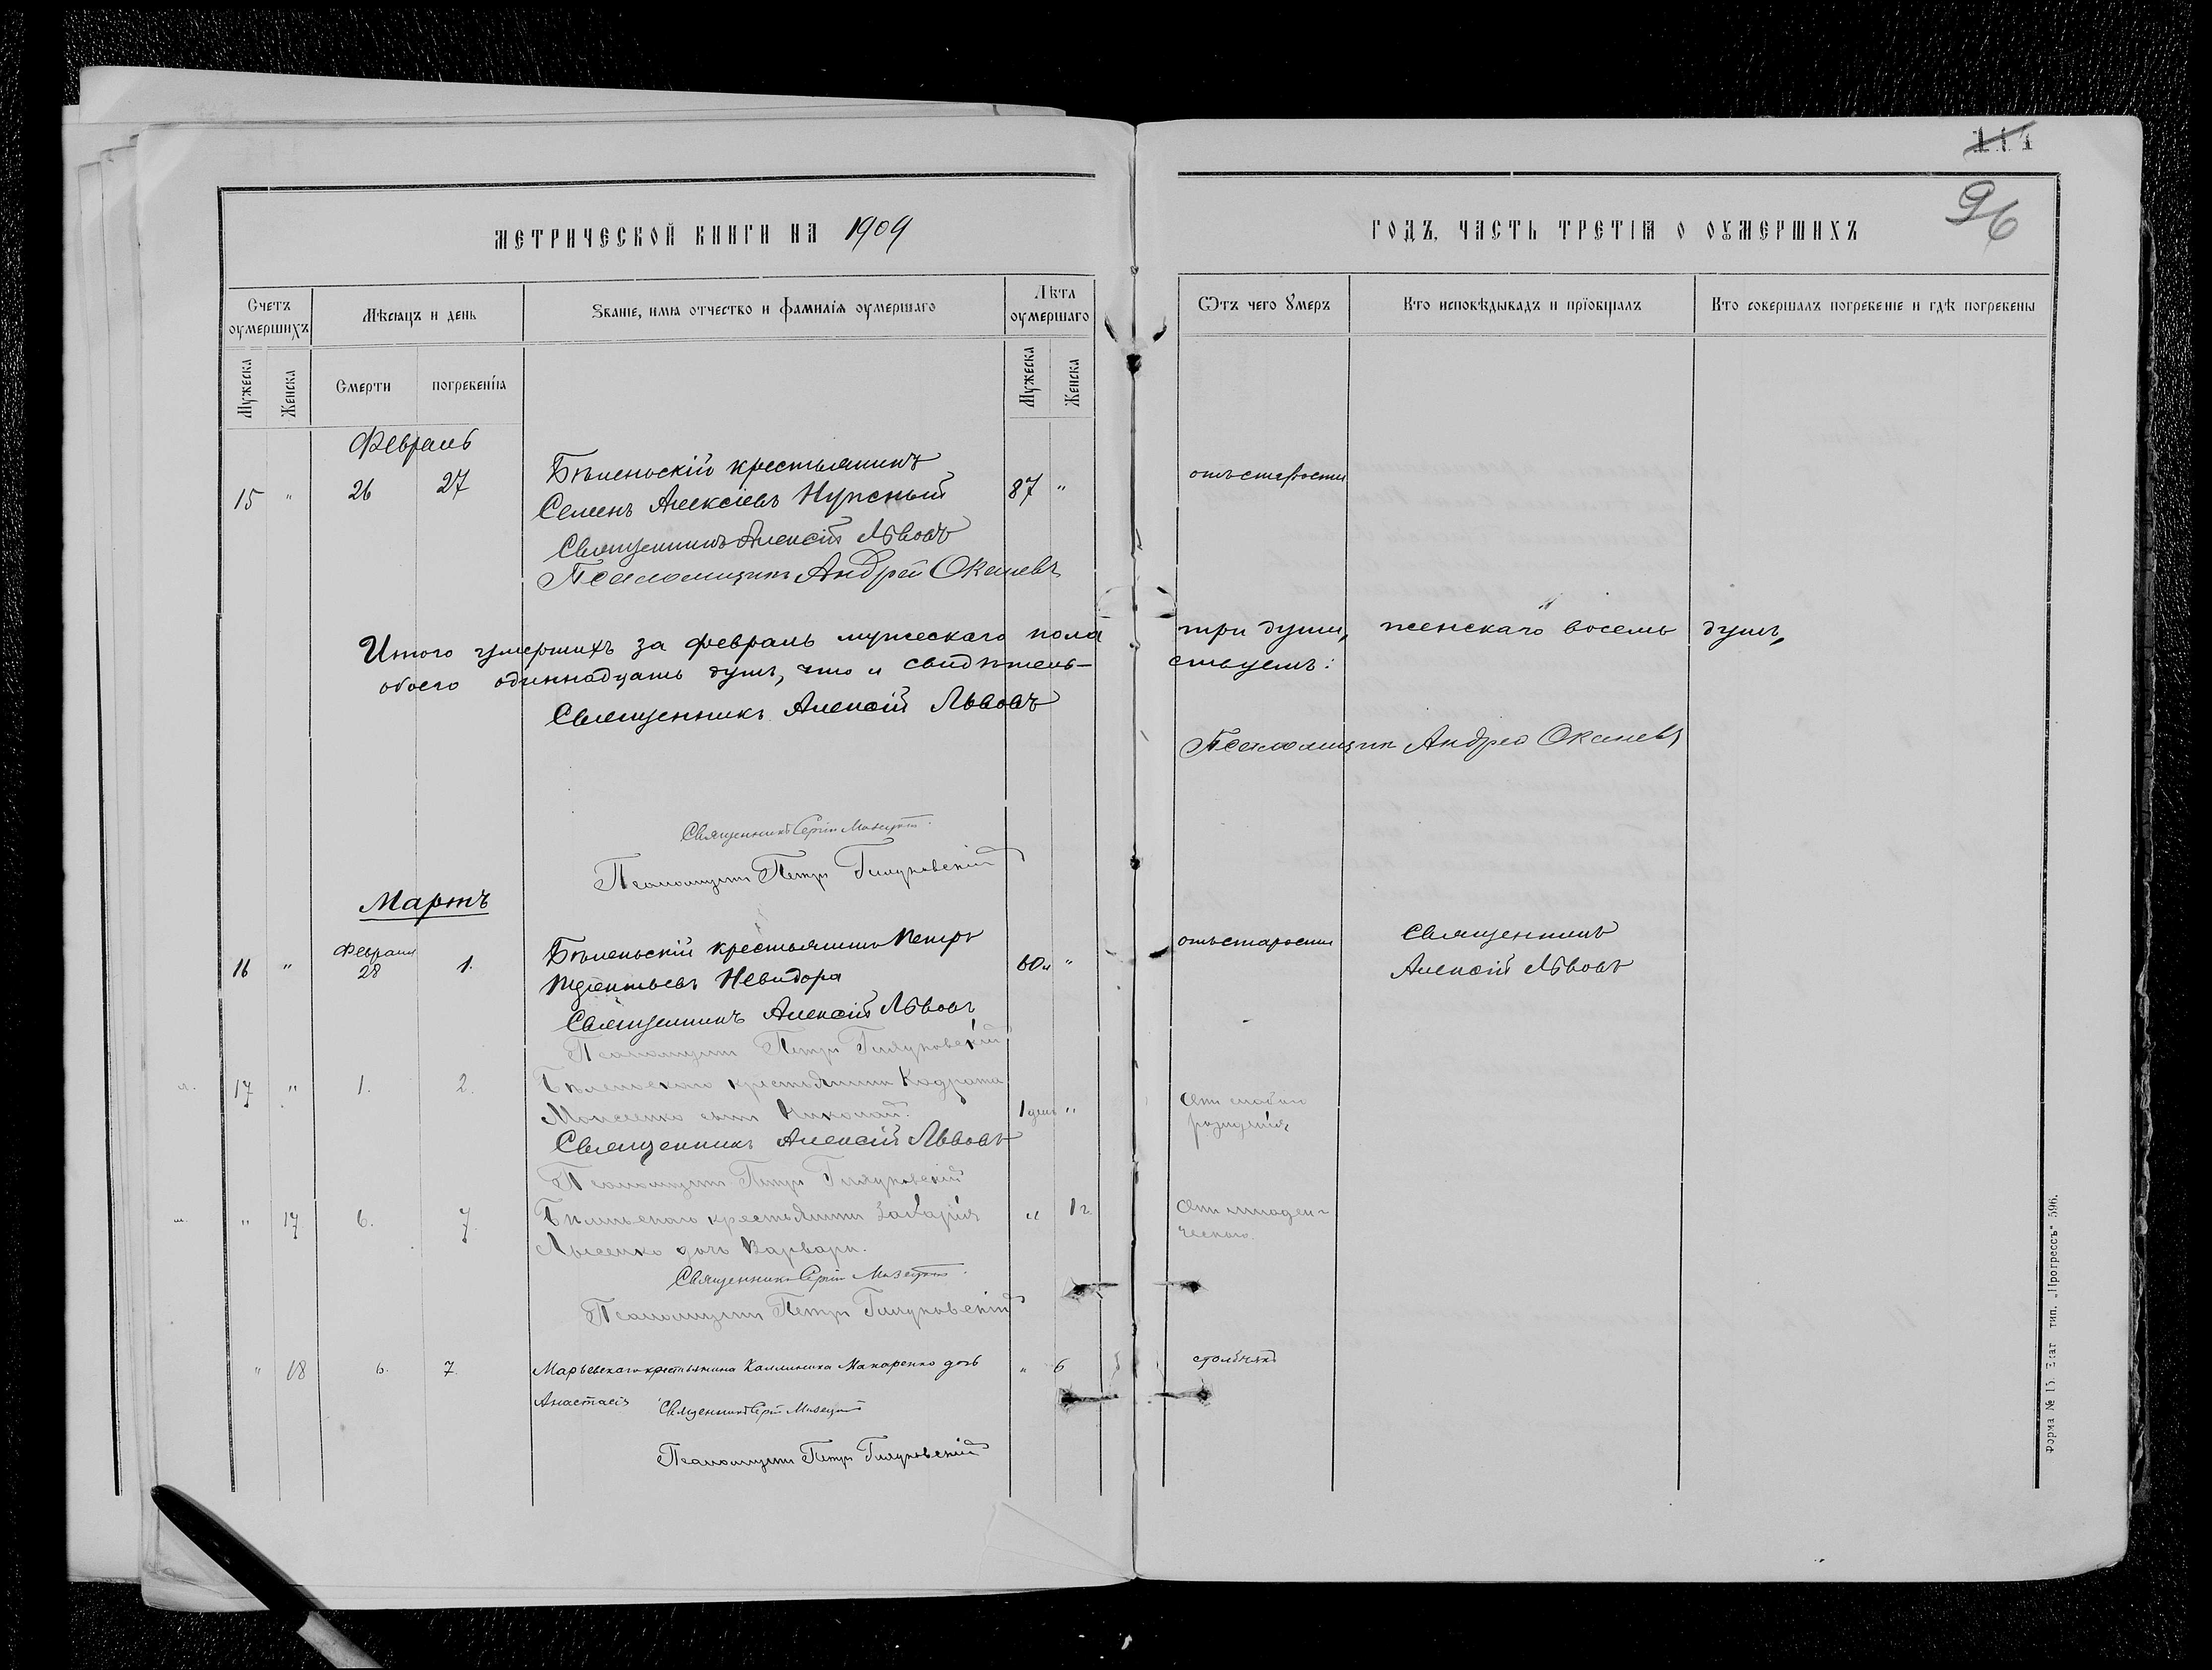 114
96
МЕТРИЧЕСКОЙ КНИГИ НА 1909
ГОДЪ, ЧАСТЬ ТРЕТІЯ О ОУМЕРШИХЪ
Счетъ оумершихъ
Мѣсяцъ и день
Званіе, имя отчество и фамилія оумершаго
Лѣта оумершаго
Ѿтъ чего Умеръ
Кто исповѣдывалъ и пріобщалъ
Кто совершалъ погребеніе и гдѣ погребены
Мужеска
Женска
Смерти
погребенія
Мужеска
Женска
Февраль
15 " 26 27 Бѣленьскій крестьянинъ
Семенъ Алексіевъ Нужный 87 " отъ старости
Священникъ Алексій Львовъ
Псаломщикъ Андрей
Итого умершихъ за февраль мужескаго пола три души, женскаго восемь душъ,
обоего одиннадцать душъ, что и свидѣтель-ствуемъ:
Священникъ Алексій Львовъ
Псаломщикъ Андрей
Священникъ Сергій
Псаломщикъ Петръ
Мартъ
16 " Февраля 28 1. Бѣленьскій крестьянинъ Петръ 60 " отъ старости Священникъ
Невидора Алексій Львовъ
Священникъ Алексій Львовъ
Псаломщикъ Петръ
17 " 1. 2. Бѣленьскаго крестьянина Кодрата
Моисеенко сынъ Николай. 1 день " Отъ слабаго
рожденія
Священникъ Алексій Львовъ
Псаломщикъ Петръ
" 17 6. 7 Бѣленьскаго крестьянина Захарія " 1 г. Отъ младен-
Лысенко дочь Варвара. ческаго.
Священникъ Сергій
Псаломщикъ Петръ
" 18 6. 7. Марьевскаго крестьянина Каллиника Макаренко дочь " 6 столбнякъ
Анастасія Священникъ Сергій
Псаломщикъ Петръ
Форма № 15. Екат. тип. „Прогрессъ" 596.